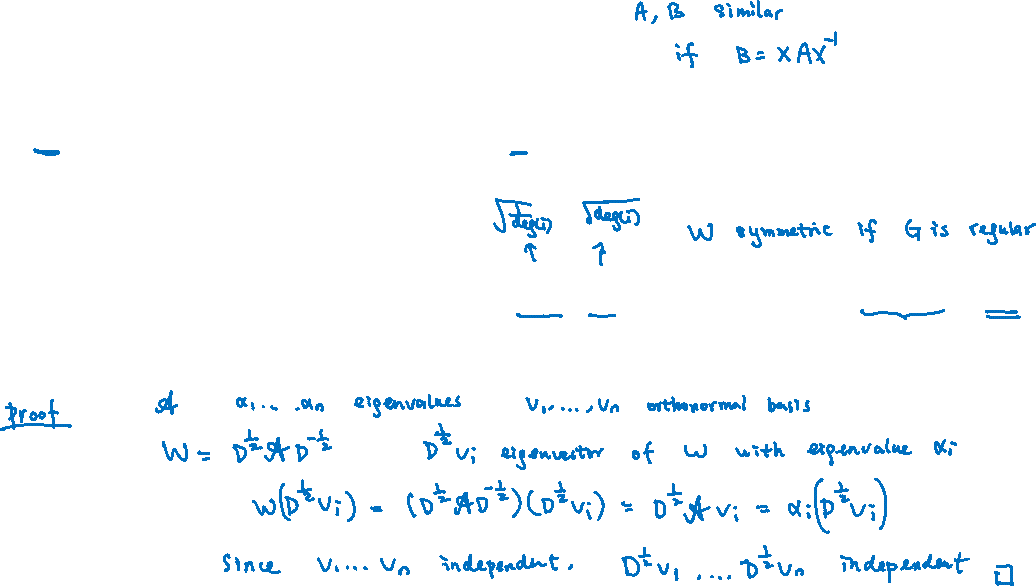 A, B similar
if B = XAX⁻¹
√(1/deg(i)) √deg(i) W symmetric if G is regular
↑ ↑
proof 𝒜 α₁....αₙ eigenvalues v₁,...,vₙ orthonormal basis
W = D^½ 𝒜 D^-½ D^½ vᵢ eigenvector of W with eigenvalue αᵢ
W(D^½ vᵢ) = (D^½ 𝒜 D^-½)(D^½ vᵢ) = D^½ 𝒜 vᵢ = αᵢ(D^½ vᵢ)
Since v₁... vₙ independent. D^½ v₁,....D^½ vₙ independent □